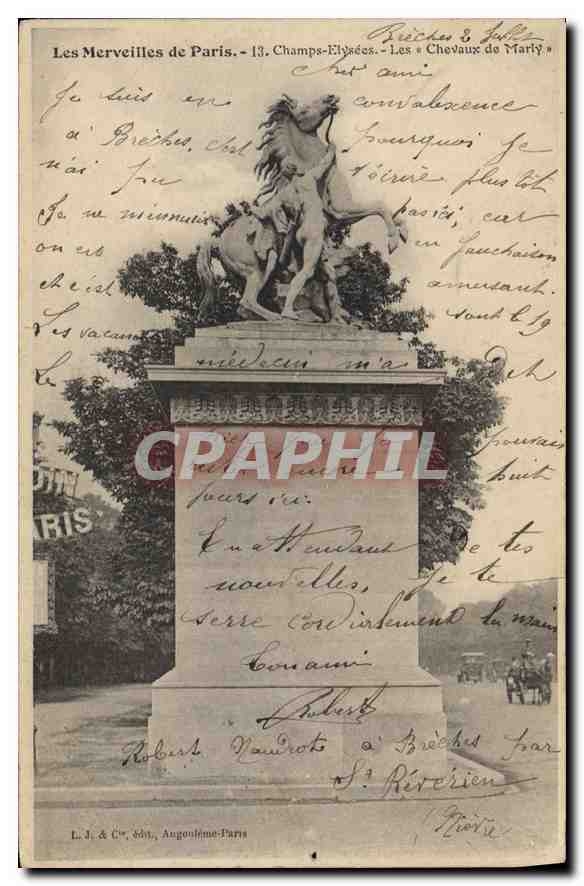 Brèches 2 Juillet
Les Merveilles de Paris. - 13. Champs-Elysées. - Les « Chevaux de Marly »
Cher ami
Je suis en convalexcence
à Brèches, c'est pourquoi Je
n'ai pu t'écrire plus tôt
Je ne m'ennuie pas ici, car
on est en fauchaison
et c'est amusant.
Les vacances sont le 19
Le médecin m'a
pouvais
huit
jours ici.
En attendant de tes
nouvelles, Je te
serre cordialement la main
Ton ami
Robert
Robert Naudrot à Brèches par
St Révérien
(Nièvre)
PARIS
CPArama.com
L. J. & Cie, édit., Angoulême-Paris